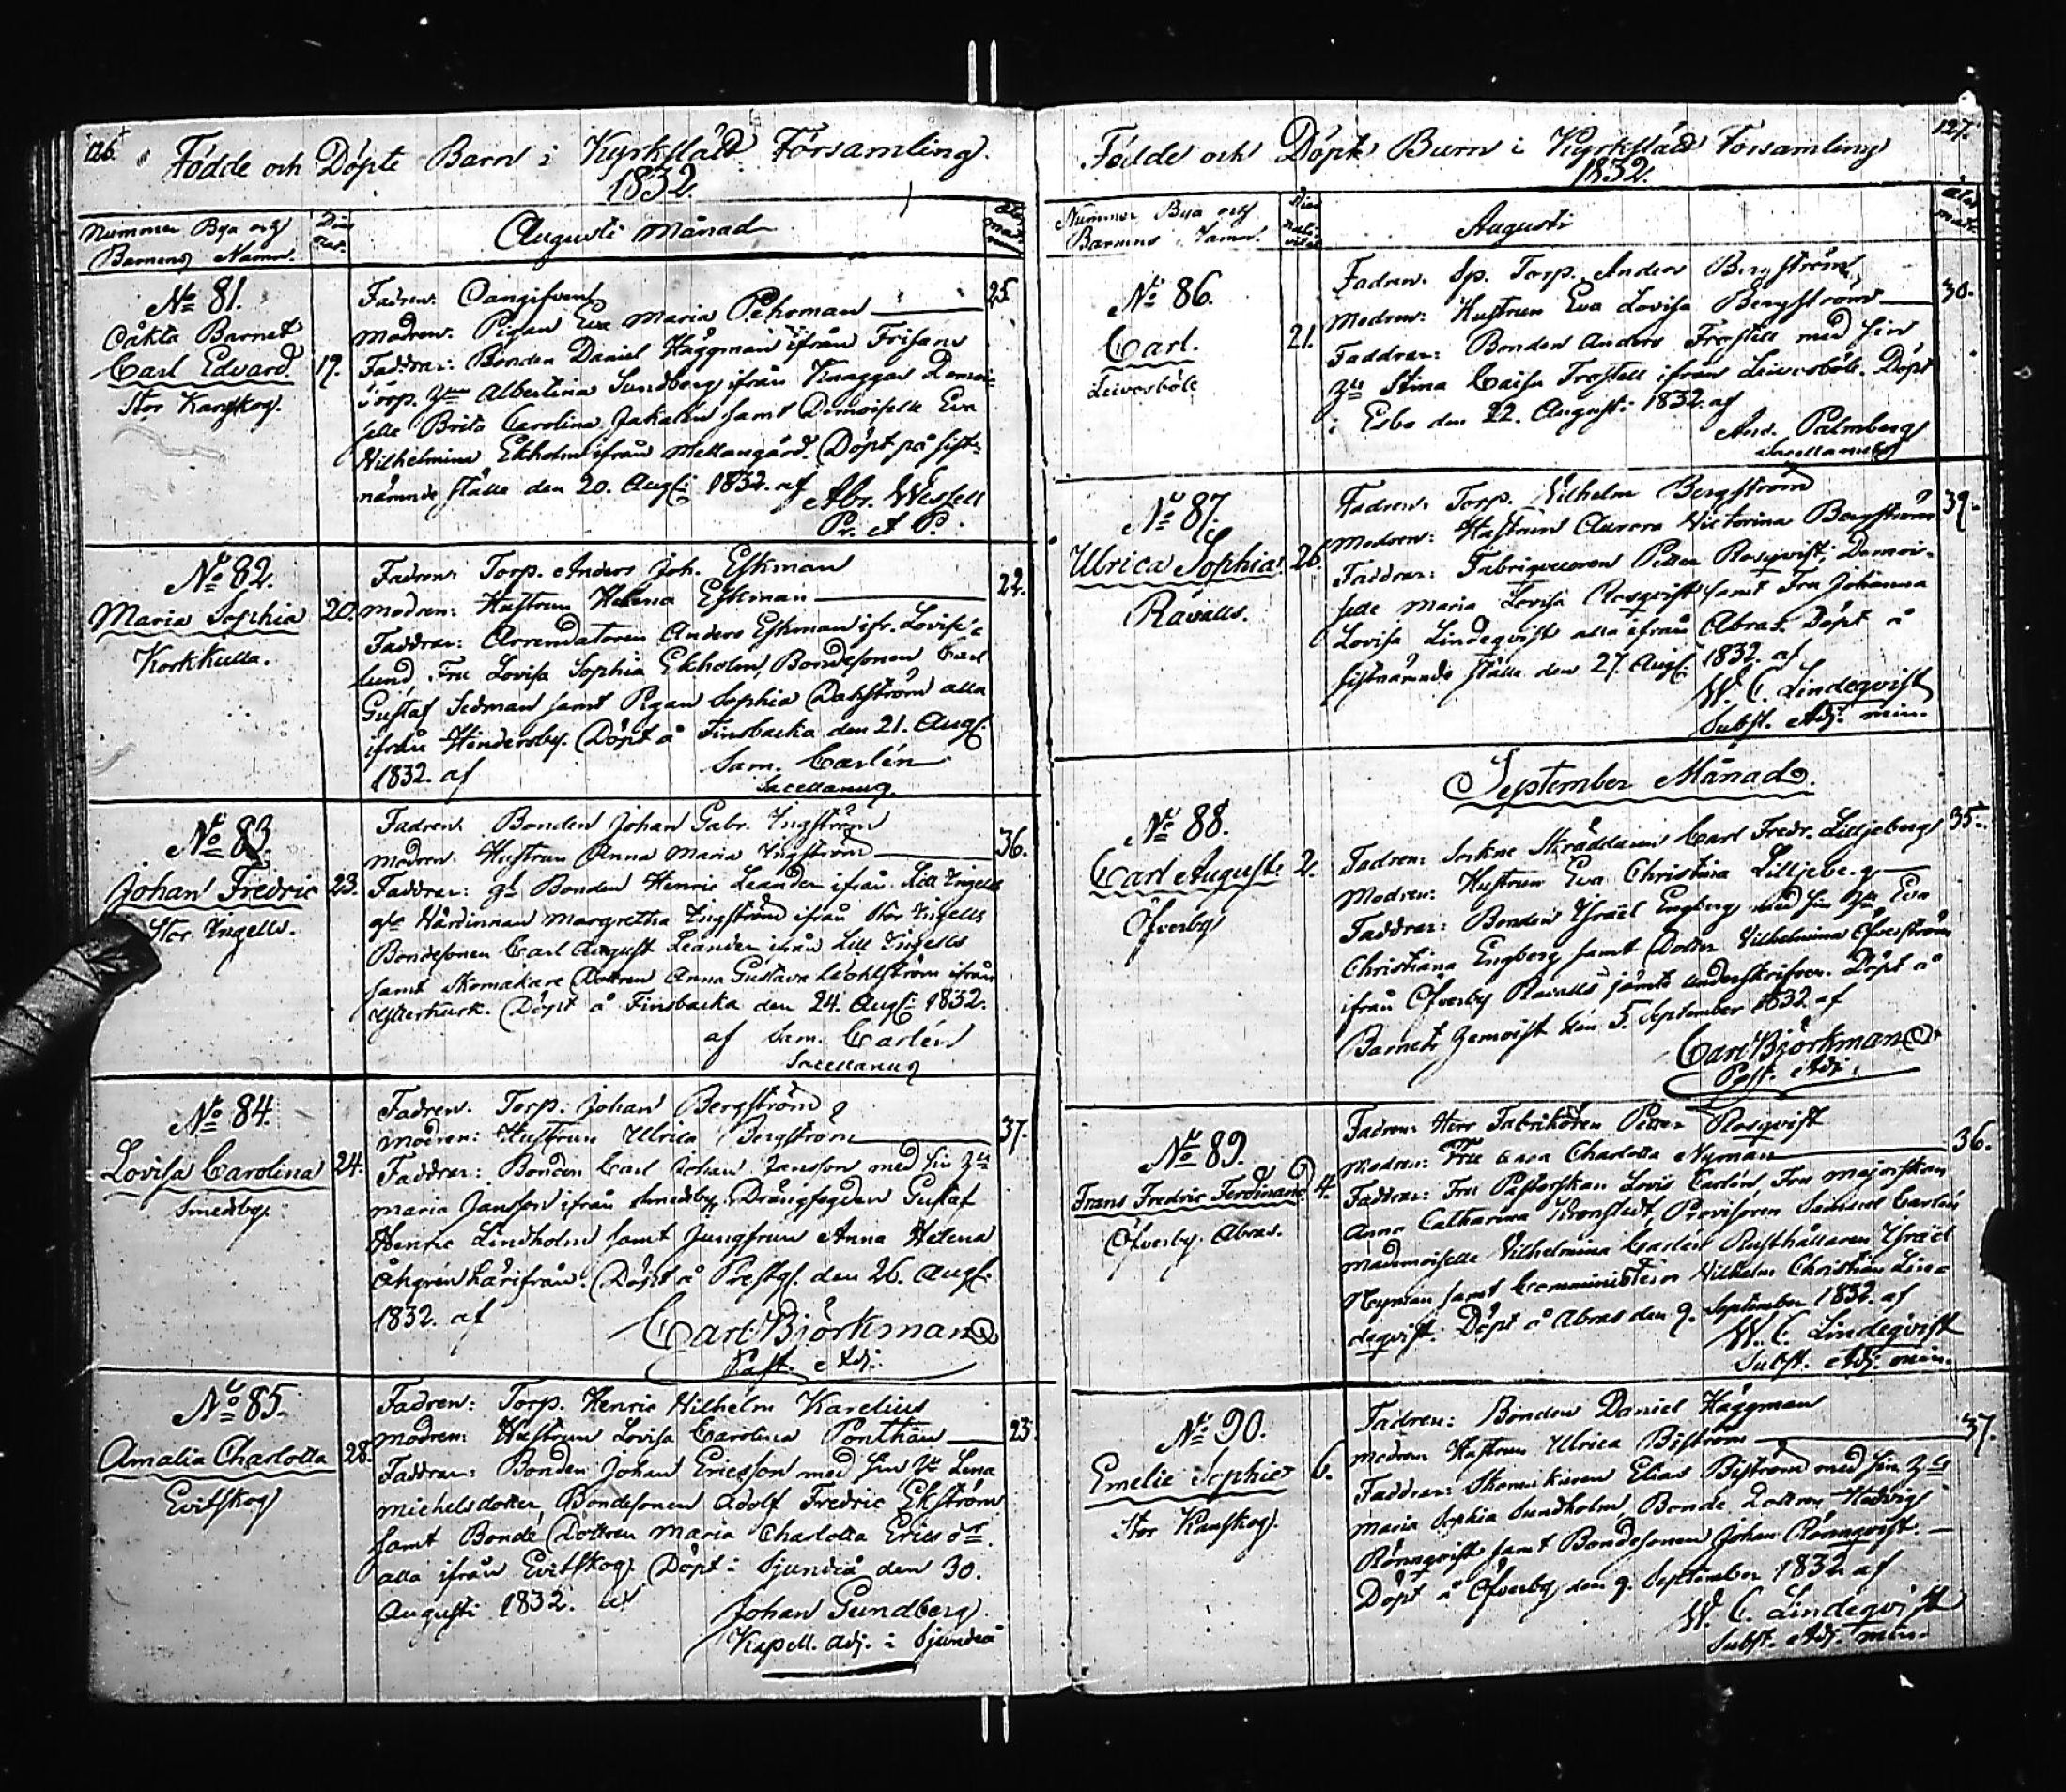 126.
Födde och Döpte Barn i Kyrkslätt Församling.
1832.
Nummer Bya och
Barnens Namn.
Dies
nat.
Augusti Månad
No 81.
Oäkta Barnet
Carl Edvard.
Stor Kanskog.
19.
Fadren: Oangifven
Modren: Pigan Eva Maria Pehrman
25.
Faddrar: Bonden Daniel Häggman ifrån Frisans
Torp. Albertina Sundberg ifrån Knaggas Demoi-
selle Brita Carolina samt Demoiselle Eva
Wilhelmina Ekholm ifrån Mellangård. Döpt på sist-
nämnde ställe den 20. Aug: 1832. af
Abr. Wessell
Pr. A P.
No 82.
Maria Sophia
Korkkulla.
20.
Fadren: Torp. Anders Joh. Eskman
Modren: Hustrun Helena Eskman
22.
Faddrar: Arrendatoren Anders Eskman ifr. Lovise-
lund Fru Lovisa Sophia Ekholm, Bondesonen Carl
Gustaf Sedman samt Pigan Sophia Dahlström alla
ifrån Hindersby. Döpt å Finsbacka den 21. Aug:
1832. af
Sam. Carlén
Sacellanus.
No 83.
Johan Fredric
Stor Ingells.
23.
Fadren: Bonden Johan Gabr. Ingström
Modren: Hustrun Anna Maria Ingström
36.
Faddrar: gl. Bonden Henric Leander ifrån Lill Ingells
gl. Värdinnan Margretha Ingström ifrån Stor Ingells
Bondesonen Carl August Leander ifrån Lill Ingells
samt Skomakare Dottren Anna Gustava Wohlström ifrån
Ytterkurk. Döpt å Finsbacka den 24. Aug: 1832.
af Sam. Carlén
Sacellanus
No 84.
Lovisa Carolina
Smedsby.
24.
Fadren: Torp. Johan Bergström
Modren: Hustrun Ulrica Bergström
37.
Faddrar: Bonden Carl Johan Jansson med sin
Maria Jansson ifrån Smedsby, Drängfogden Gustaf
Henric Lindholm samt Jungfrun Anna Helena
Åhgren härifrån. Döpt å Prestg. den 26. Aug:
1832. af
Carl Björkman
Past. Adj.
No 85.
Amalia Charlotta
Evitskog
28.
Fadren: Torp. Henric Wilhelm Karelius
Modren: Hustrun Lovisa Carolina Ponthan
23.
Faddrar: Bonden Johan Ericsson med sin Lena
Michelsdotter, Bondesonen Adolf Fredric Ekström
samt Bonde Dottren Maria Charlotta
alla ifrån Evitskog. Döpt i Sjundeå den 30.
Augusti 1832. af
Johan Sundberg
Kapell. adj. i Sjundeå
127.
Födde och Döpte Barn i Kyrkslätt Församling
1832.
Nummer Bya och
Barnens Namn.
Dies
Augusti
No 86.
Carl.
Leivosböle
21.
Fadren: Sp. Torp. Anders Bergström
Modren: Hustrun Eva Lovisa Bergström
30.
Faddrar: Bonden Anders Frostell med sin
Stina Caisa Frostell ifrån Leivosböle. Döpt
i Esbo den 22. Augusti 1832. af
And. Palmberg
Sacellanus
No 87.
Ulrica Sophia.
Råvalls.
26.
Fadren: Torp. Wilhelm Bergström
Modren: Hustrun Aurora Victorina Bergström
39.
Faddrar: Fabriqueuren Petter Rosqvist, Demoi-
selle Maria Lovisa Rosqvist samt Fru Johanna
Lovisa Lindeqvist alla ifrån Åbras. Döpt å
sistnämnde ställe den 27. Aug: 1832. af
W. C. Lindeqvist
Subst. Adj. min.
September Månad.
No 88.
Carl August.
Öfverby
2.
Fadren: Sockne Skräddaren Carl Fredr. Lilljeberg
35.
Modren: Hustrun Eva Christina Lilljeberg
Faddrar: Bonden Israël Engberg med sin Eva
Christina Engberg samt Dotter Wilhelmina Öfverström
ifrån Öfverby Ravalls jämte underskrifven. Döpt å
Barnets hemvist den 5. September 1832. af
Carl Björkman
Past. Adj.
No 89.
Frans Fredric Ferdinand
Öfverby. Åbras.
4.
Fadren: Herr Fabrikören Petter Rosqvist
Modren: Fru Charlotta Nyman
36.
Faddrar: Fru Pastorskan Lovis Carlén Fru Majorskan
Anna Catharina Provisoren Samuel Carlén
Mademoiselle Wilhelmina Carlén Rusthållaren Israël
Nyman samt Comministern Wilhelm Christian Lin-
deqvist. Döpt å Åbras den 9. September 1832. af
W. C. Lindeqvist
Subst. Adj. min.
No 90.
Emelie Sophie
Stor Kanskog.
6.
Fadren: Bonden Daniel Häggman
Modren: Hustrun Ulrica Biström
37.
Faddrar: Skomakaren Elias Biström med sin
Maria Sophia Sundholm, Bonde Dottren Hedvig
Rönnqvist samt Bondesonen Johan Rönnqvist.
Döpt å Öfverby den 9. September 1832 af
W. C. Lindeqvist
Subst. Adj. min.